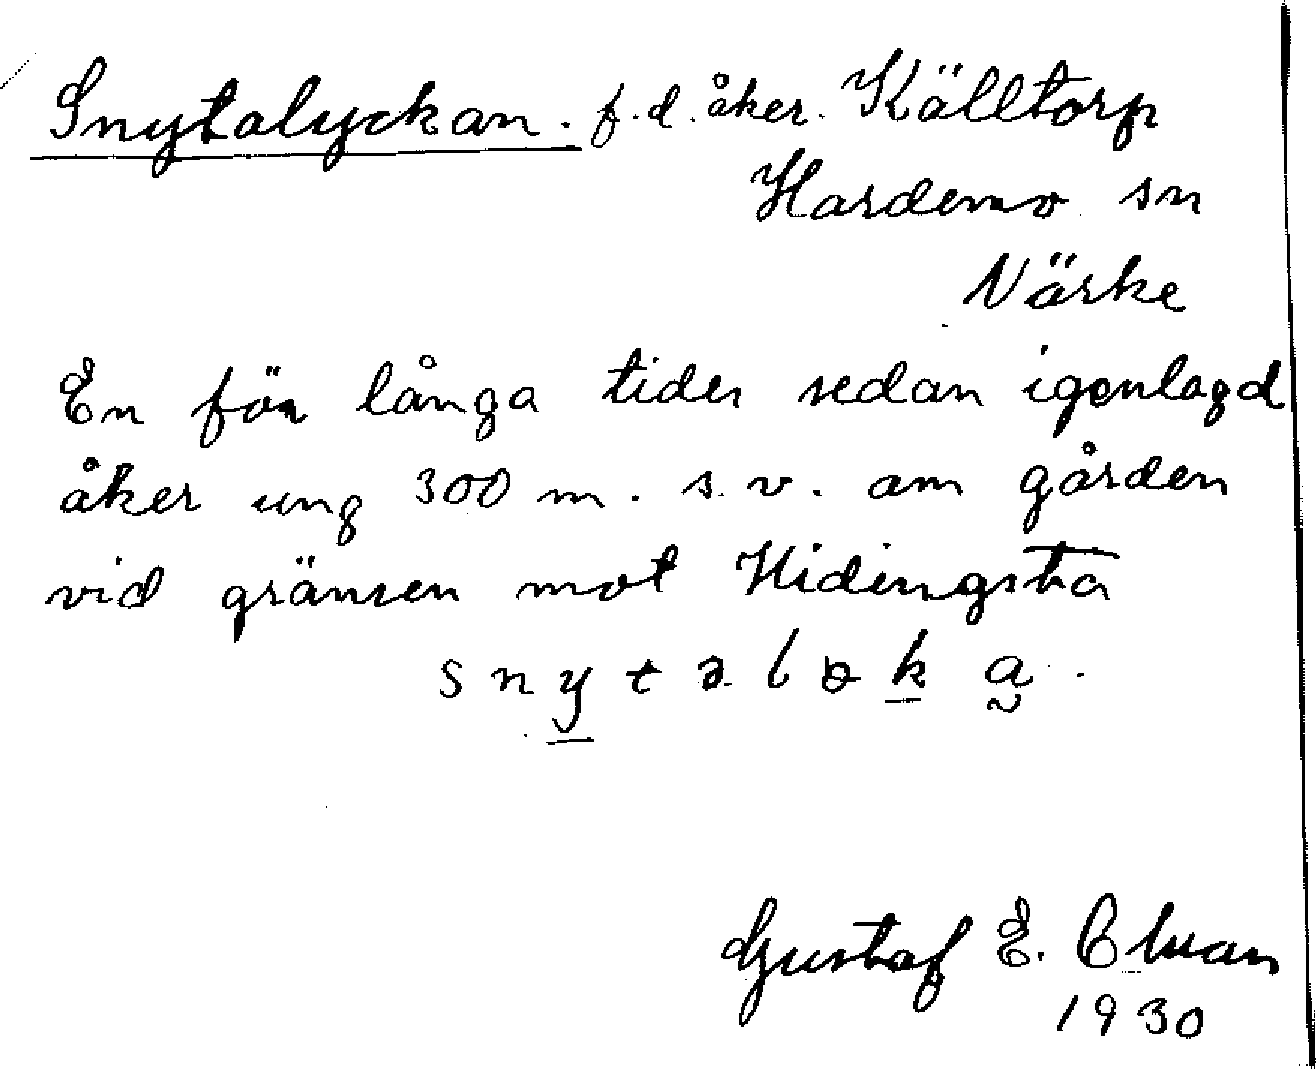 Snytalyckan. f.d. åker. Källtorp
Hardemo sn
Närke
En för långa tider sedan igenlagd
åker ung 300 m. s.v. om gården
vid gränsen mot Hidingsta
snytəl k a.
Gustaf E.
1930